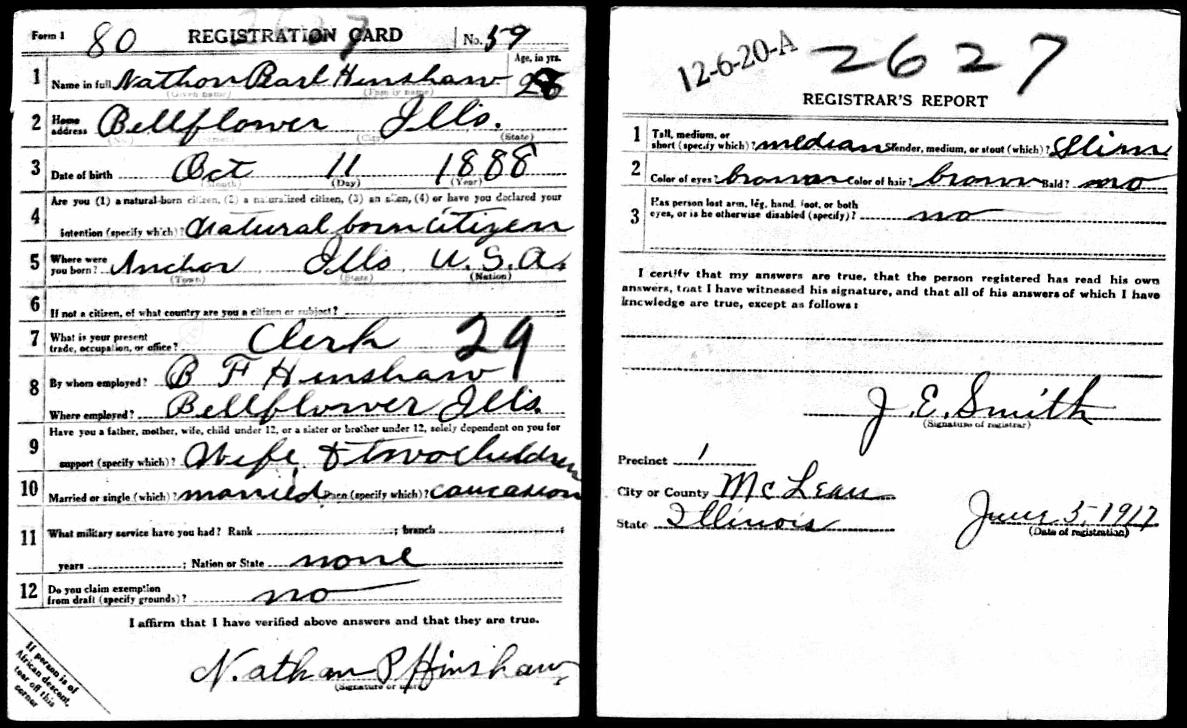 Form 1 80 REGISTRATION CARD No. 59
2627
1 Name in full Nathon Barl Hinshaw Age, in yrs. 28
(Given name) (Family name)
2 Home address Bellflower Ills.
(No.) (City) (State)
3 Date of birth Oct 11 1888
(Month) (Day) (Year)
Are you (1) a natural-born citizen, (2) a naturalized citizen, (3) an alien, (4) or have you declared your
4 intention (specify which)? Natural born citizen
5 Where were you born? Anchor Ills U.S.A.
(Town) (State) (Nation)
6 If not a citizen, of what country are you a citizen or subject?
7 What is your present trade, occupation, or office? Clerk 29
8 By whom employed? B F Hinshaw
Where employed? Bellflower Ills.
9 Have you a father, mother, wife, child under 12, or a sister or brother under 12, solely dependent on you for
support (specify which)? Wife & two Children
10 Married or single (which)? married Race (specify which)? caucasion
11 What military service have you had? Rank ; branch ;
years ; Nation or State none
12 Do you claim exemption from draft (specify grounds)? no
I affirm that I have verified above answers and that they are true.
Nathan P Hinshaw
(Signature or mark)
If person is of
African descent,
tear off this
corner
12-6-20-A 2627
REGISTRAR'S REPORT
1 Tall, medium, or short (specify which)? median Slender, medium, or stout (which)? Slim
2 Color of eyes? brown Color of hair? brown Bald? no
3 Has person lost arm, leg, hand, foot, or both
eyes, or is he otherwise disabled (specify)? no
I certify that my answers are true, that the person registered has read his own
answers, that I have witnessed his signature, and that all of his answers of which I have
knowledge are true, except as follows:
J. E. Smith
(Signature of registrar)
Precinct 1
City or County McLean
State Illinois June 5, 1917
(Date of registration)